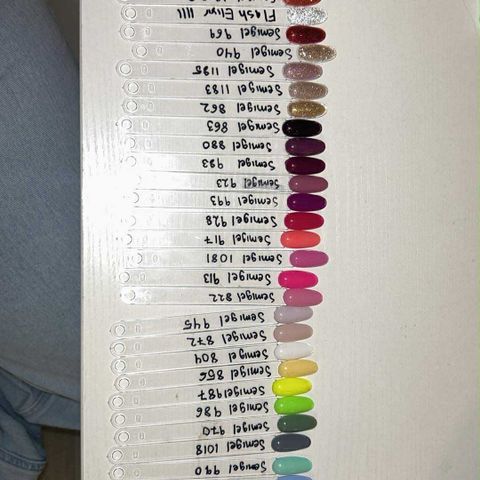 Semigel 990
Semigel 1018
Semigel 970
Semigel 986
Semigel 987
Semigel 856
Semigel 804
Semigel 872
Semigel 945
Semigel 822
Semigel 913
Semigel 1081
Semigel 917
Semigel 928
Semigel 993
Semigel 923
Semigel 983
Semigel 880
Semigel 863
Semigel 862
Semigel 1183
Semigel 1185
Semigel 940
Semigel 969
Flash Elixir IIII